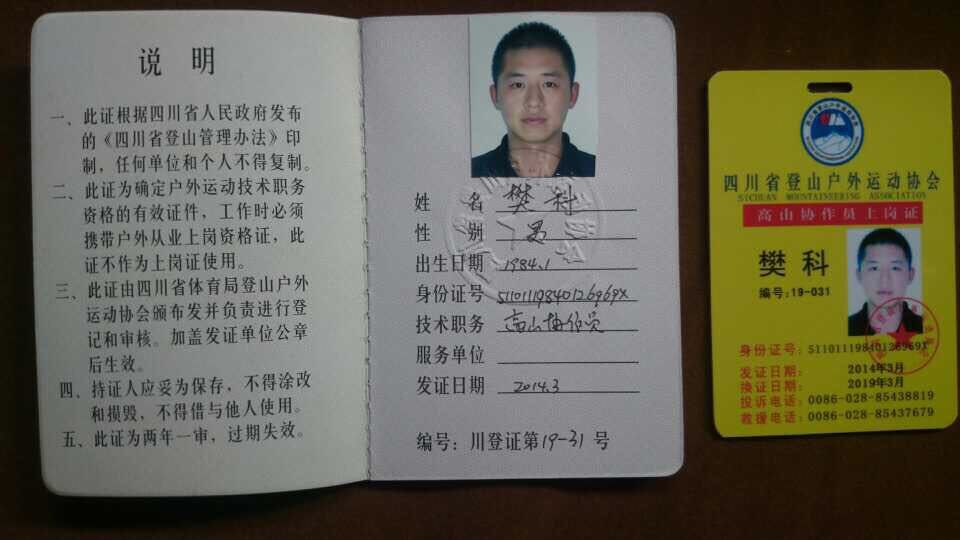 说 明
一、此证根据四川省人民政府发布
的《四川省登山管理办法》印
制，任何单位和个人不得复制。
二、此证为确定户外运动技术职务
资格的有效证件，工作时必须
携带户外从业上岗资格证，此
证不作为上岗证使用。
三、此证由四川省体育局登山户外
运动协会颁布发并负责进行登
记和审核。加盖发证单位公章
后生效。
四、持证人应妥为保存，不得涂改
和损毁，不得借与他人使用。
五、此证为两年一审，过期失效。
姓 名 樊科
性 别 男
出生日期 1984.1
身份证号 51101119840126969X
技术职务 高山协作员
服务单位
发证日期 2014.3
编号：川登证第19-31 号
四川省登山户外运动协会
SICHUAN MOUNTAINEERING ASSOCIATION
高山协作员上岗证
樊科
编号:19-031
身份证号：51101119840126969X
发证日期： 2014年3月
换证日期： 2019年3月
投诉电话：0086-028-85438819
救援电话：0086-028-85437679